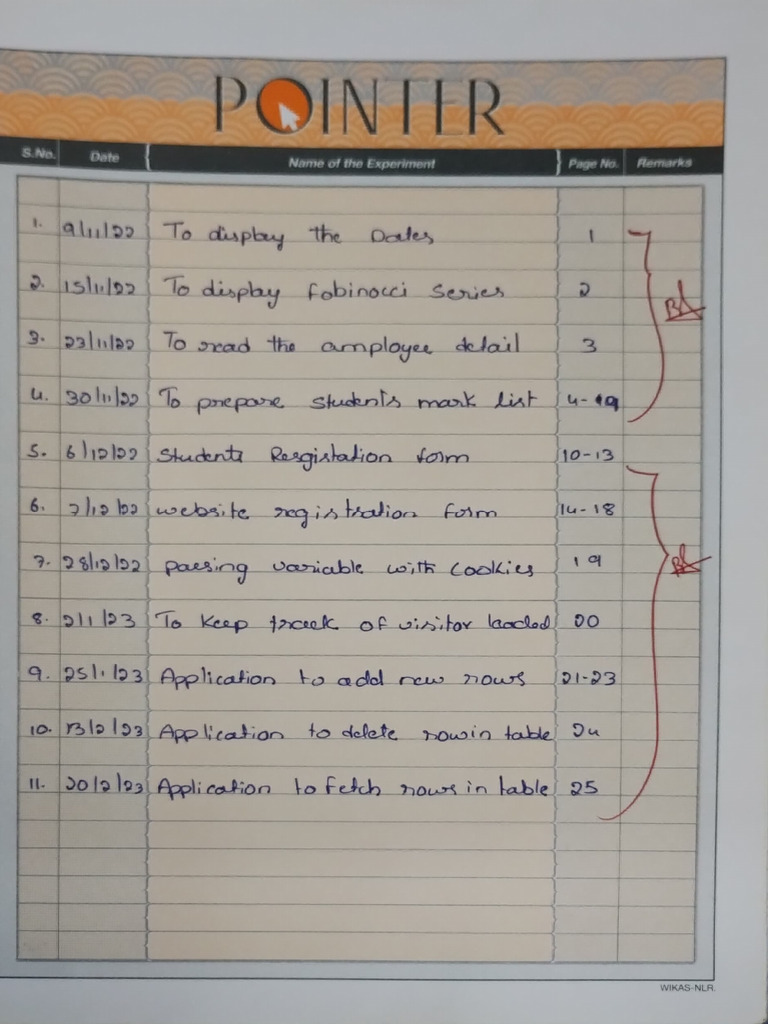 POINTER
S.No. Date Name of the Experiment Page No. Remarks
1. 9/11/22 To display the Dates 1
2. 15/11/22 To display fobinocci series 2
3. 23/11/22 To read the amployee detail 3
4. 30/11/22 To prepare students mark list 4-9
5. 6/12/22 Students Resgistation form 10-13
6. 7/12/22 website registration form 14-18
7. 28/12/22 passing variable with cookies 19
8. 2/1/23 To keep track of visitor loaded 20
9. 25/1/23 Application to add new rows 21-23
10. 13/2/23 Application to delete row in table 24
11. 20/2/23 Application to fetch rows in table 25
WIKAS-NLR.